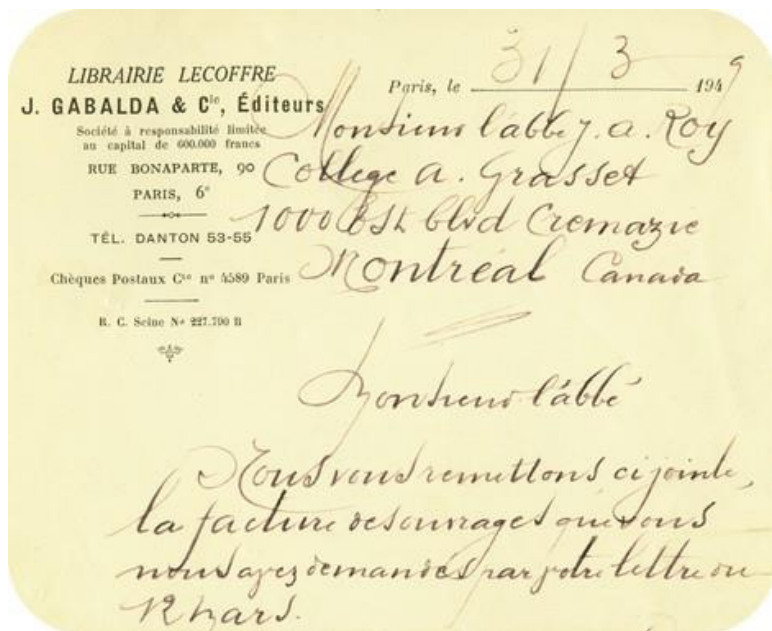 LIBRAIRIE LECOFFRE
J. GABALDA & Cie, Éditeurs
Société à responsabilité limitée
au capital de 600.000 francs
RUE BONAPARTE, 90
PARIS, 6e
TÉL. DANTON 53-55
Chèques Postaux Cte no 4589 Paris
R. C. Seine No 227.790 B
Paris, le 31/3 1949
Monsieur l'abbé J. A. Roy
College A. Grasset
1000 Est blvd Cremazie
Montréal Canada
Monsieur l'abbé
Nous vous remettons ci jointe,
la facture des ouvrages que vous
nous avez demandés par votre lettre du
12 Mars.